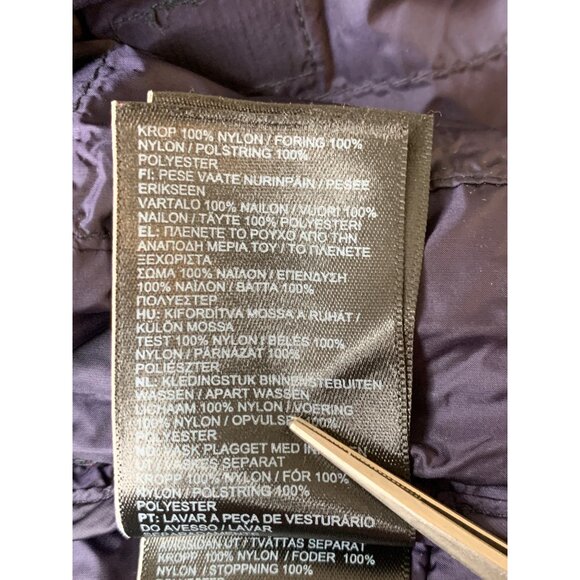 KROP 100% NYLON / FORING 100%
NYLON / POLSTRING 100%
POLYESTER
FI: PESE VAATE NURINPÄIN / PESEE
ERIKSEEN
VARTALO 100% NAILON / VUORI 100%
NAILON / TÄYTE 100% POLYESTERI
EL: ΠΛΕΝΕΤΕ ΤΟ ΡΟΥΧΟ ΑΠΟ ΤΗΝ
ΑΝΑΠΟΔΗ ΜΕΡΙΑ ΤΟΥ / ΤΟ ΠΛΕΝΕΤΕ
ΞΕΧΩΡΙΣΤΑ
ΣΩΜΑ 100% ΝΑΪΛΟΝ / ΕΠΕΝΔΥΣΗ
100% ΝΑΪΛΟΝ / ΒΑΤΤΑ 100%
ΠΟΛΥΕΣΤΕΡ
HU: KIFORDÍTVA MOSSA A RUHÁT /
KÜLÖN MOSSA
TEST 100% NYLON / BÉLÉS 100%
NYLON / PÁRNÁZAT 100%
POLIÉSZTER
NL: KLEDINGSTUK BINNENSTEBUITEN
WASSEN / APART WASSEN
LICHAAM 100% NYLON / VOERING
100% NYLON / OPVULSEL 100%
POLYESTER
NO: VASK PLAGGET MED
UT / VASKES SEPARAT
KROPP 100% NYLON / FÓR 100%
NYLON / POLSTRING 100%
POLYESTER
PT: LAVAR A PEÇA DE VESTURÁRIO
DO AVESSO / LAVAR
UT / TVÄTTAS SEPARAT
KROPP 100% NYLON / FODER 100%
NYLON / STOPPNING 100%